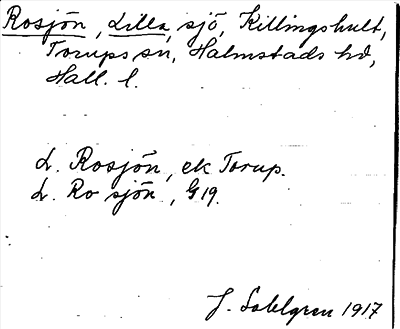 Rosjön, Lilla, sjö, Killingshult,
Torups sn, Halmstads hd,
Hall. l.
L. Rosjön, ek Torup.
L. Ro sjön, G19.
J. Sahlgren 1917